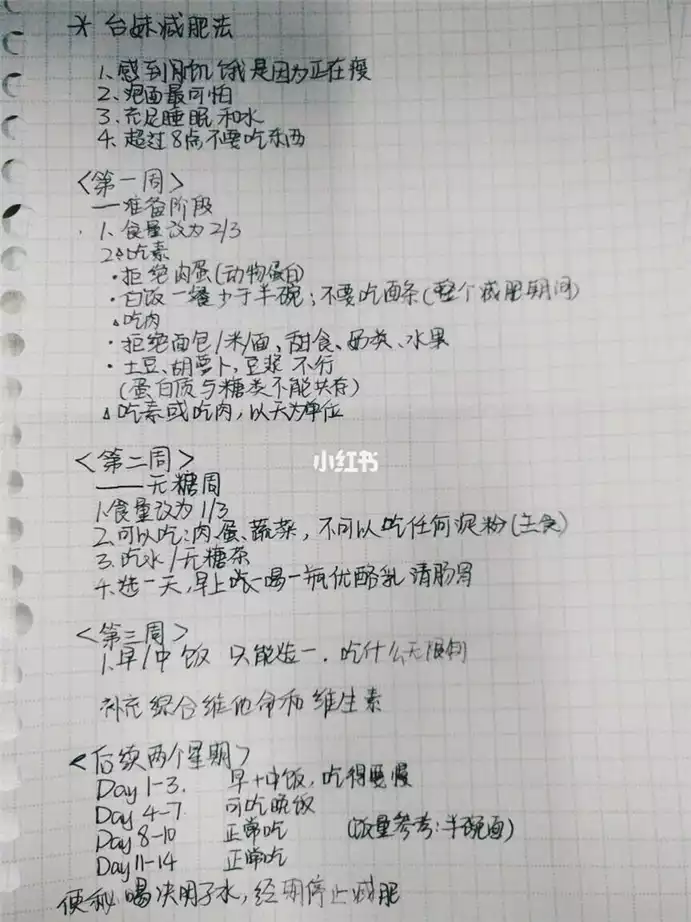 * 台妹减肥法
1、感到肚饥饿是因为正在瘦
2、泡面最可怕
3、充足睡眠和水
4、超过8点不要吃东西
<第一周>
—准备阶段
1、食量改为2/3
2△吃素
·拒绝肉蛋(动物蛋白)
·白饭一餐少于半碗;不要吃面条(整个减肥期间)
△吃肉
·拒绝面包/米/面、甜食、奶类、水果
·土豆、胡萝卜、豆浆 不行
(蛋白质与糖类不能共存)
△吃素或吃肉,以天为单位
<第二周>
小红书
——无糖周
1.食量改为1/3
2、可以吃:肉、蛋、蔬菜,不可以吃任何淀粉(主食)
3、吃水/无糖茶
4、选一天,早上喝一瓶优酪乳 清肠胃
<第三周>
1、早/中饭 只能选一,吃什么无限制
补充综合维他命和维生素
<后续两个星期>
Day 1-3. 早+中饭,吃得要慢
Day 4-7 可吃晚饭
Day 8-10 正常吃 (饭量参考:半碗面)
Day 11-14 正常吃
便秘喝决明子水,经期停止减肥